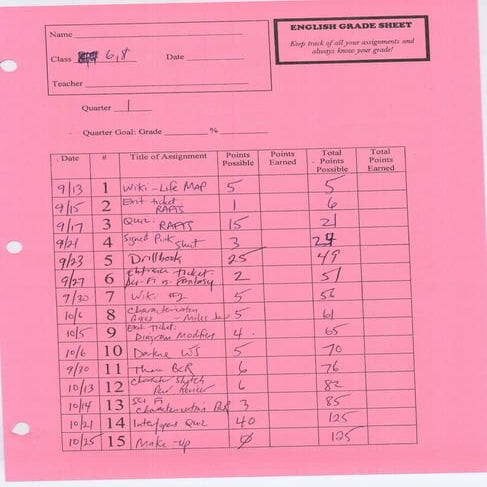 Name
ENGLISH GRADE SHEET
Keep track of all your assignments and
always know your grade!
Class 6,8 Date
Teacher
Quarter 1
Quarter Goal: Grade %
Date # Title of Assignment Points Possible Points Earned Total Points Possible Total Points Earned
9/13 1 Wiki - Life MAP 5 5
9/15 2 Exit ticket: RAFTS 1 6
9/17 3 Quiz: RAFTS 15 21
9/21 4 Signed Pink Sheet 3 24
9/23 5 Drillbook 25 49
9/27 6 Entrance ticket: Sci-Fi vs Fantasy 2 51
9/30 7 Wiki #2 5 56
10/6 8 Characterization - Miles 5 61
10/5 9 Exit Ticket: Diagram Modifiers 4 65
10/6 10 WS 5 70
9/30 11 Theme BCR 6 76
10/13 12 Character Sketch Peer 6 82
10/14 13 Sci Fi Characterization BCR 3 85
10/21 14 Quiz 40 125
10/25 15 Make-up 0 125